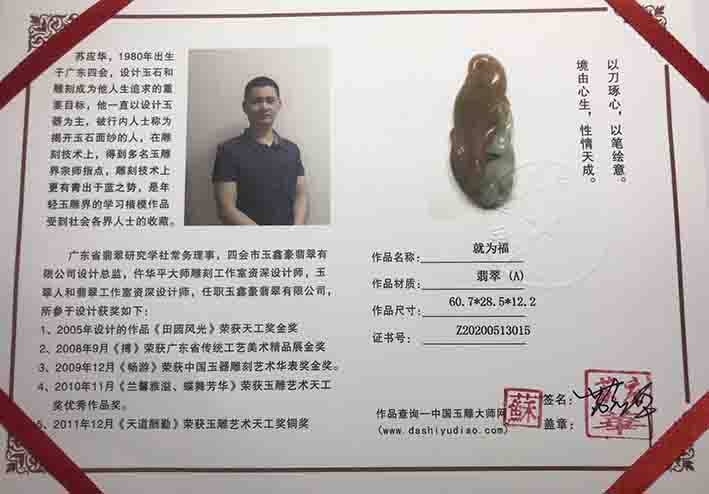 苏应华，1980年出生
于广东四会，设计玉石和
雕刻成为他人生追求的重
要目标，他一直以设计玉
器为主，被行内人士称为
揭开玉石面纱的人，在雕
刻技术上，得到多名玉雕
界宗师指点，雕刻技术上
更有青出于蓝之势，是年
轻玉雕界的学习楷模作品
受到社会各界人士的收藏。
广东省翡翠研究学社常务理事，四会市玉鑫豪翡翠有
限公司设计总监，仵华平大师雕刻工作室资深设计师，玉
翠人和翡翠工作室资深设计师，任职玉鑫豪翡翠有限公司，
所参于设计获奖如下：
1、2005年设计的作品《田园风光》荣获天工奖金奖
2、2008年9月《搏》荣获广东省传统工艺美术精品展金奖
3、2009年12月《畅游》荣获中国玉器雕刻艺术华表奖金奖。
4、2010年11月《兰馨雅溢、蝶舞芳华》荣获玉雕艺术天工
奖优秀作品奖。
5、2011年12月《天道酬勤》荣获玉雕艺术天工奖铜奖
以刀琢心，以笔绘意。
境由心生，性情天成。
作品名称：就为福
作品材质：翡翠（A）
作品尺寸：60.7*28.5*12.2
证书号：Z20200513015
作品查询—中国玉雕大师网
(www.dashiyudiao.com)
蘇
签名：
盖章：